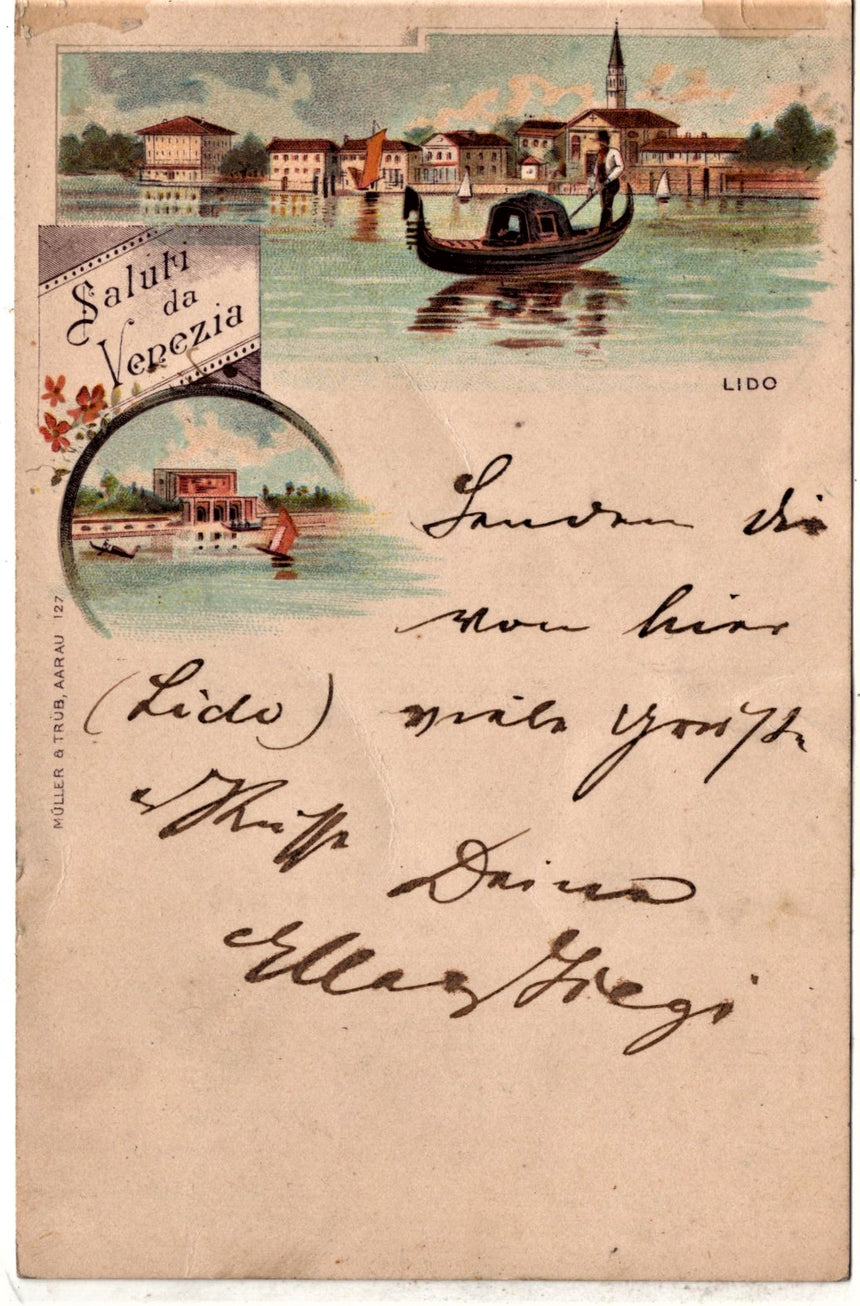 Saluti
da
Venezia
LIDO
Senden dir
von hier
(Lido) viele Grüße
u Küsse
Deine
Ella
MÜLLER & TRÜB, AARAU 127